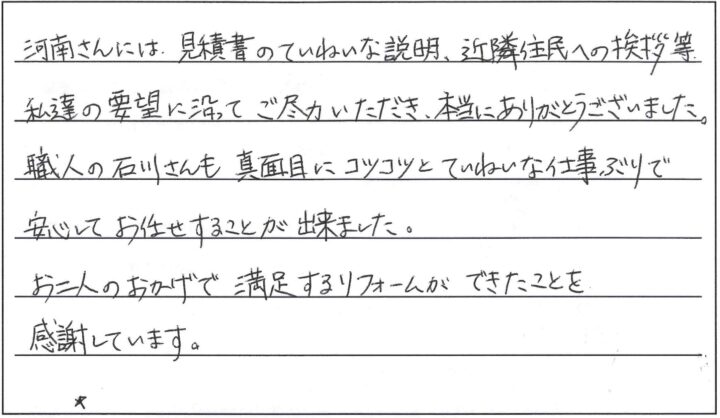 河南さんには、見積書のていねいな説明、近隣住民への挨拶等
私達の要望に沿って ご尽力いただき、本当にありがとうございました。
職人の石川さんも 真面目に コツコツと ていねいな仕事ぶりで
安心して お任せすることが 出来ました。
お二人のおかげで 満足するリフォームが できたことを
感謝しています。